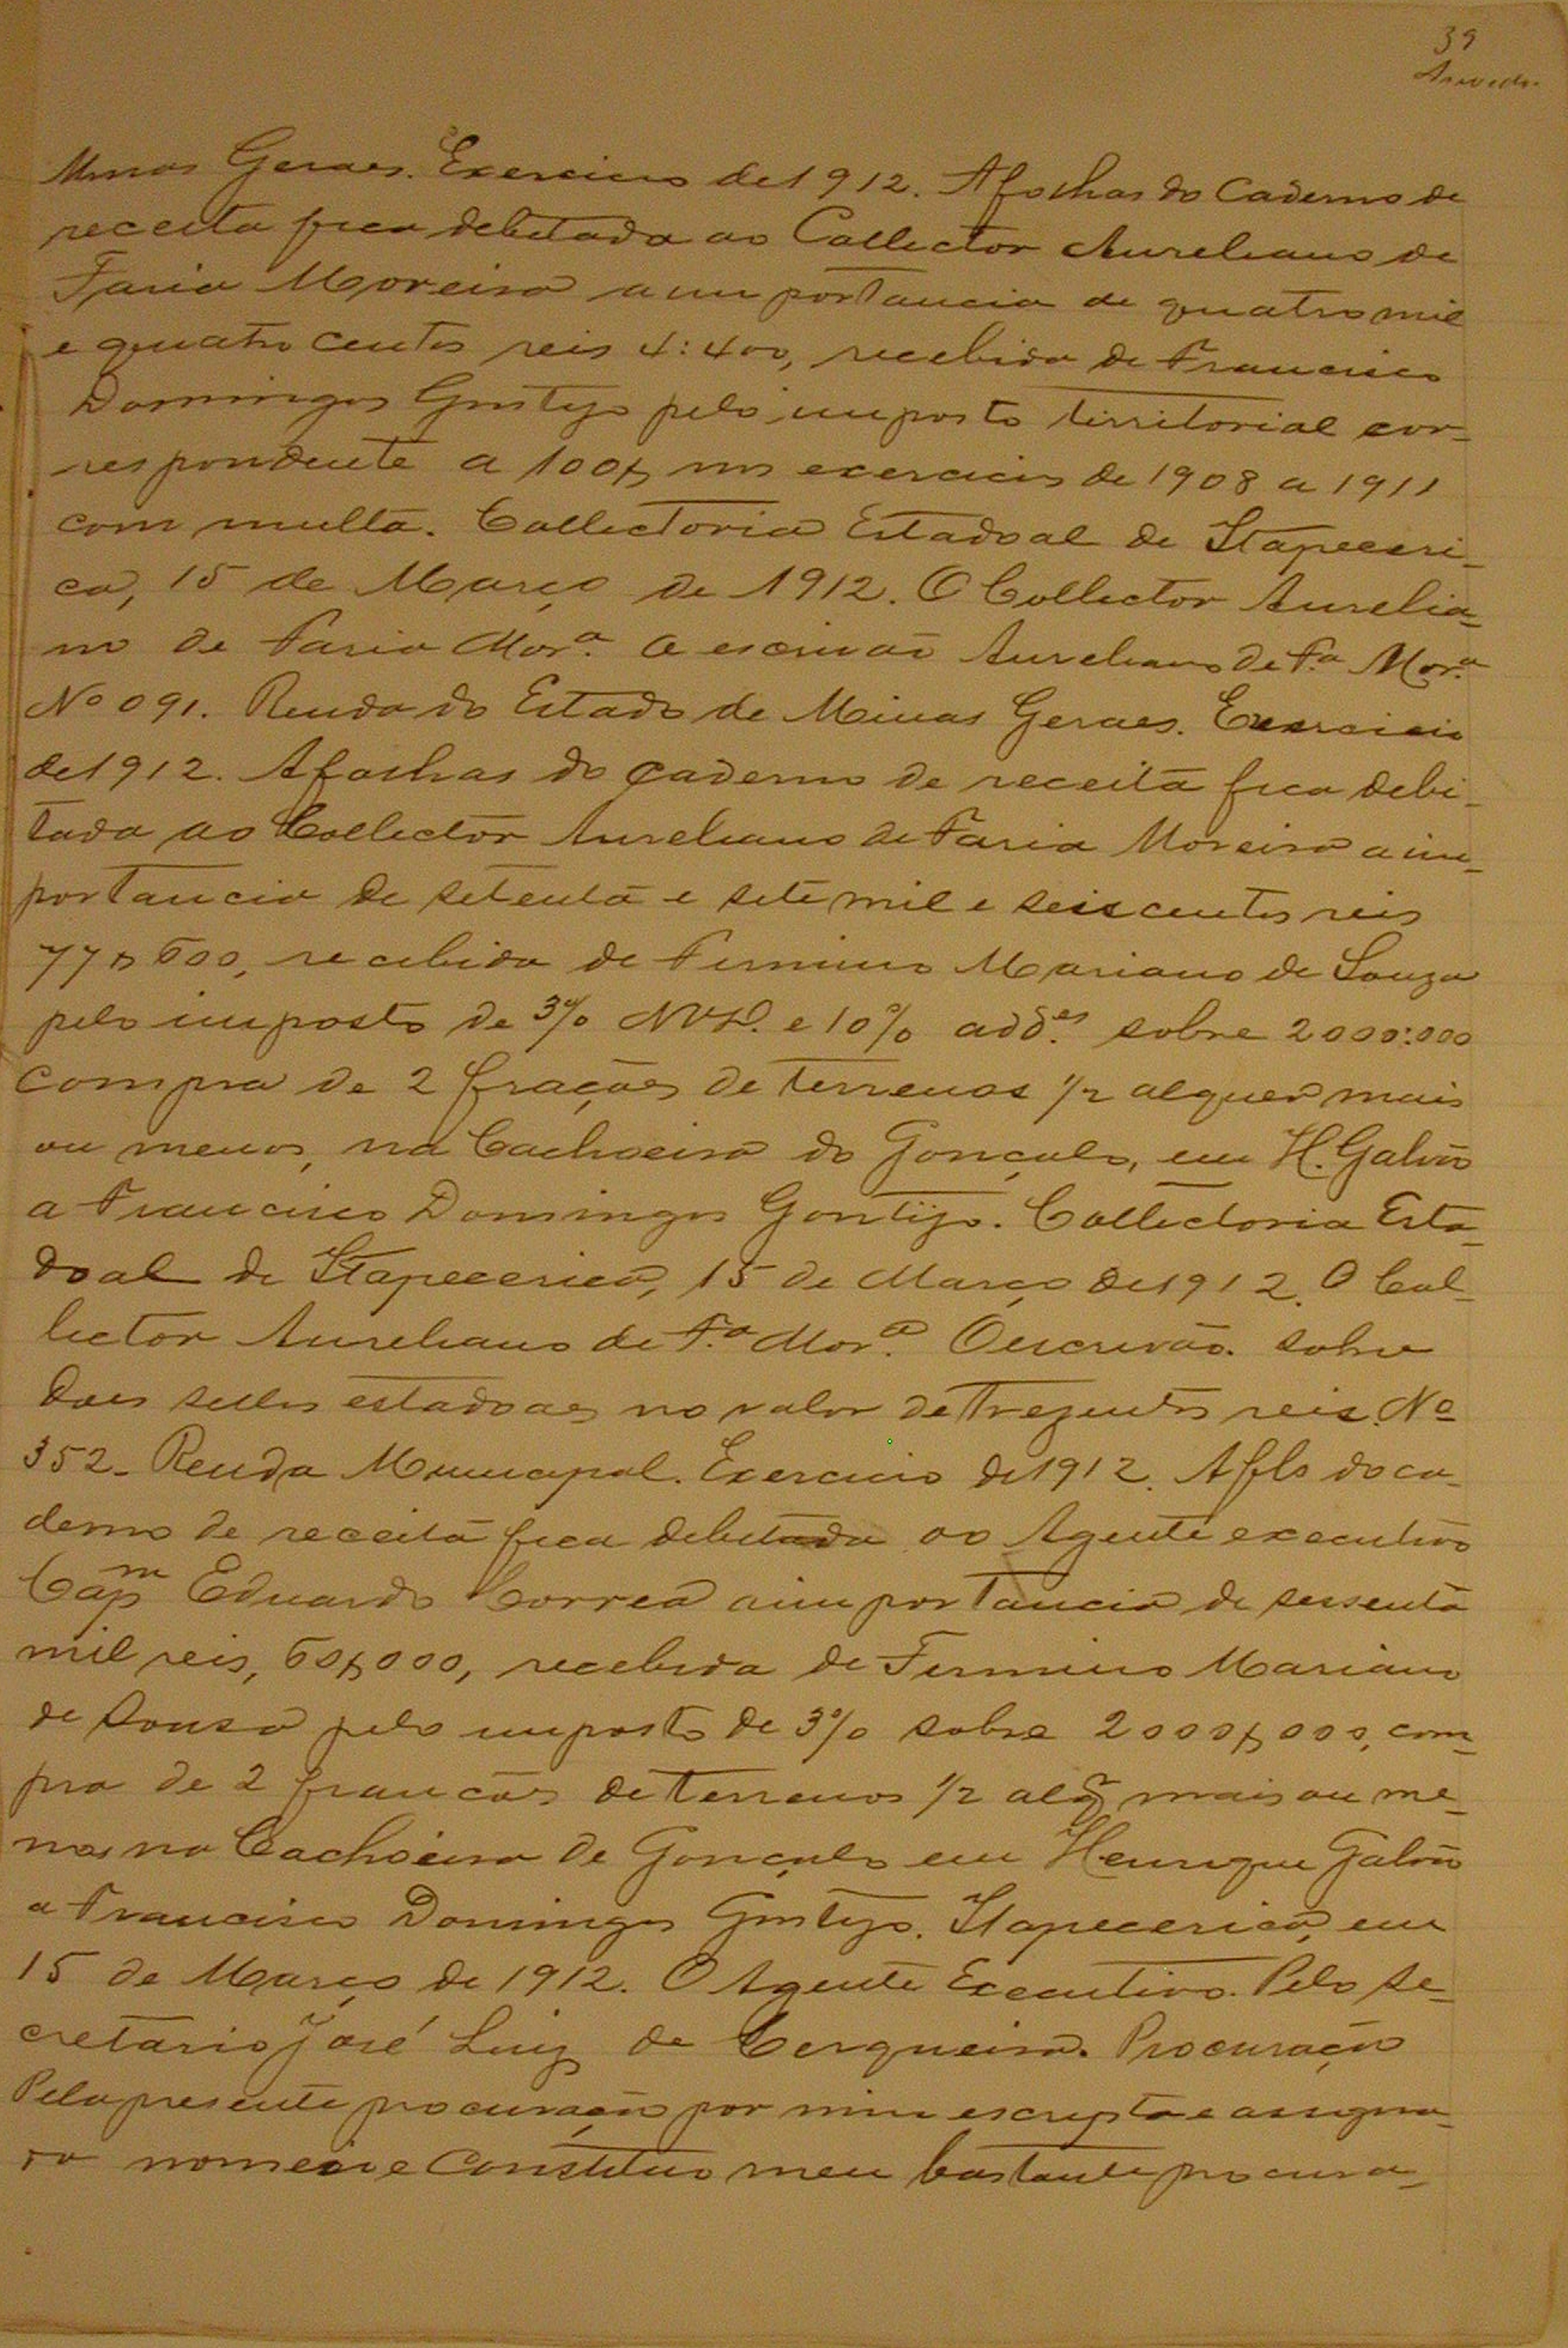 39
Azevedo
Minas Geraes. Exercicio de 1912. A folhas do Caderno de
receita fica debitada ao Collector Aureliano de
Faria Moreira a importancia de quatro mil
e quatro centos reis 4:400, recebida de Francisco
Domingos Gontijo pelo imposto territorial cor-
respondente a 100$, nos exercicios de 1908 a 1911
com multa. Collectoria Estadoal de Itapeceri-
ca, 15 de Março de 1912. O Collector Aurelia-
no de Faria Mor.ª O escrivão Aureliano de F.ª Mor.ª
Nº 091. Renda do Estado de Minas Geraes. Exercicio
de 1912. A folhas do caderno de receita fica debi-
tada ao Collector Aureliano de Faria Moreira a im-
portancia de setenta e sete mil e seis centos reis
77$600, recebida de Firmino Mariano de Souza
pelo imposto de 3% e 10% add.es sobre 2000:000
compra de 2 frações de terrenos 1/2 alquer mais
ou menos, na Cachoeira do Gonçalo, em H. Galvão
a Francisco Domingos Gontijo. Collectoria Esta-
doal de Itapecerica, 15 de Março de 1912. O Col-
lector Aureliano de F.ª Mor.ª O escrivão. Sobre
dois sellos estadoaes no valor de Trezentos reis. Nº
352. Renda Municipal. Exercicio de 1912. A fls do ca-
derno de receita fica debitada ao Agente executivo
Capm Eduardo Correa a importancia de sessenta
mil reis, 60$000, recebida de Firmino Mariano
de Souza pelo imposto de 3% sobre 2000$000, com-
pra de 2 francões de terrenos 1/2 alq mais ou me-
nos na Cachoeira de Gonçalo em Henrique Galvão
a Francisco Domingos Gontijo. Itapecerica, em
15 de Março de 1912. O Agente Executivo. Pelo Se-
cretario José Luiz de Cerqueira. Procuração
Pela presente procuração por mim escripta e assigna-
da nomeio e Constituo meu bastante procura-